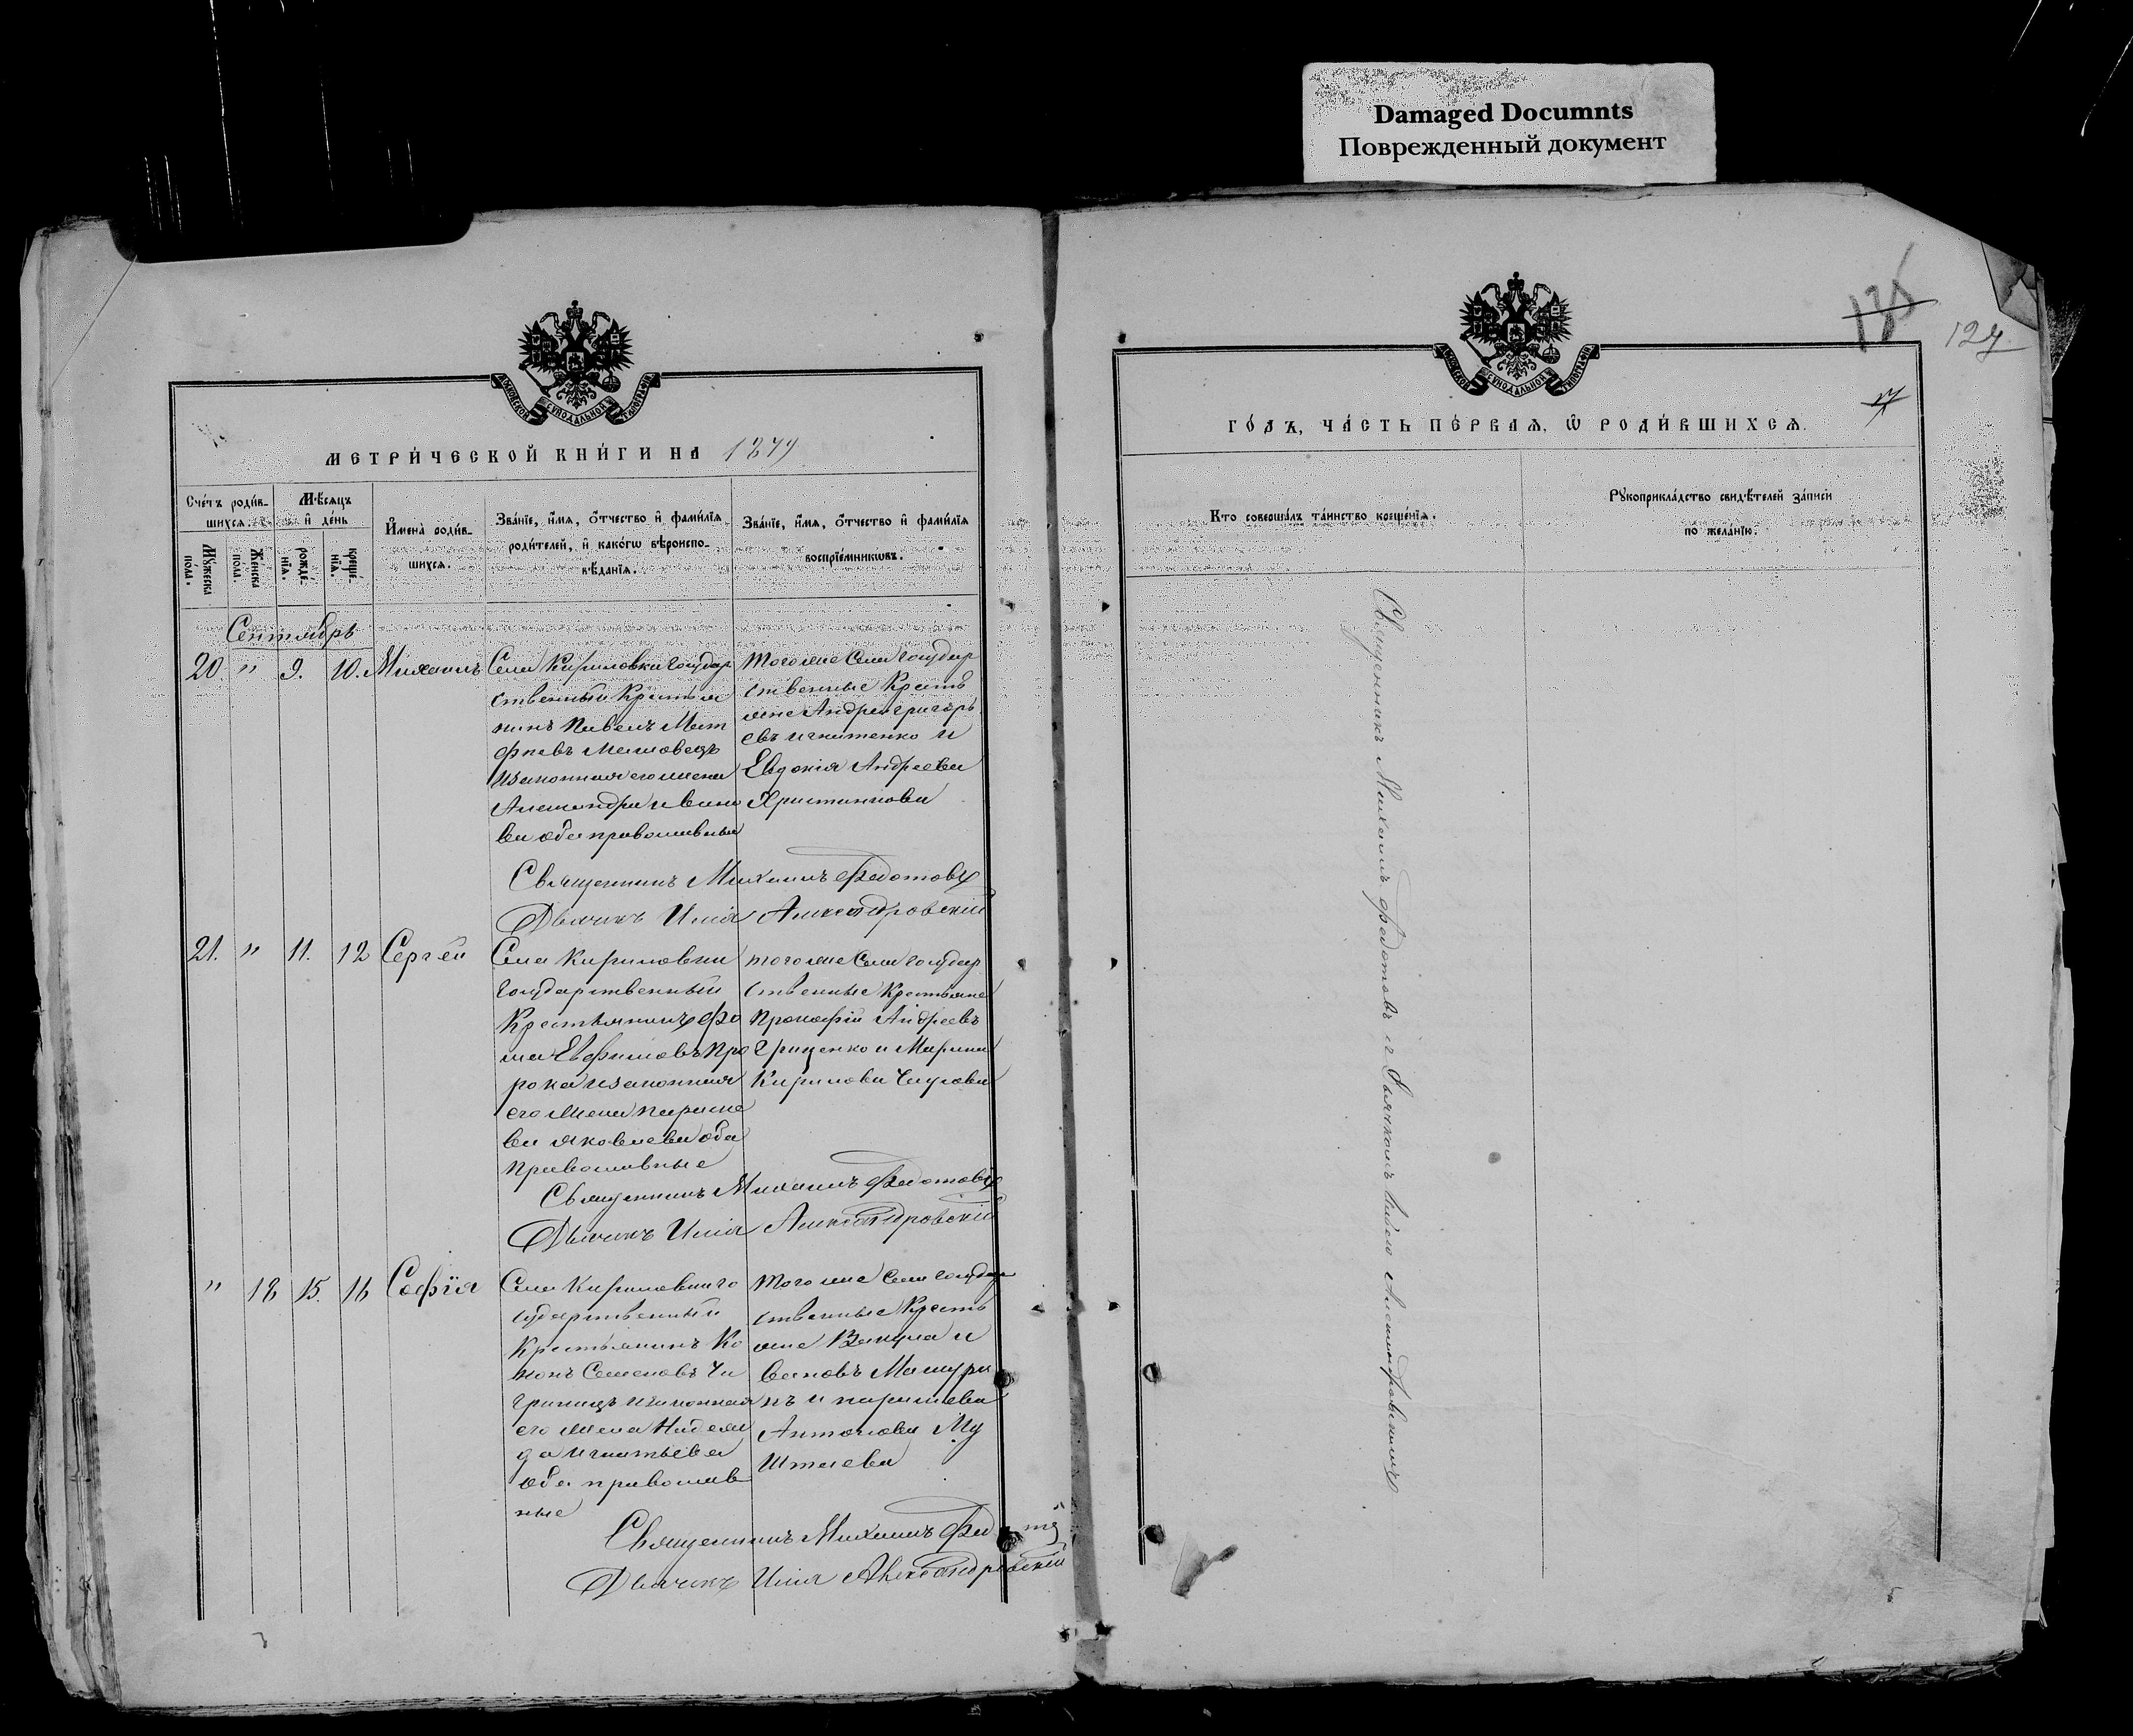 Damaged Documnts
Поврежденный документ
135
127
МОСКОВСКОЙ СѴНОДАЛЬНОЙ ТИПОГРАФІИ
МЕТРИ́ЧЕСКОЙ КНИ́ГИ НА 1879
Сче́тъ роди́в-
шихся.
Мѣ́сяцъ
и҆ де́нь
Мꙋ́жеска
по́ла.
Же́нска
по́ла.
рожде́-
нїѧ.
креще́-
нїѧ.
И҆мена̀ роди́в-
шихся.
Зва́нїе, и҆́мѧ, ѻ҆́тчество и҆ фами́лїѧ
роди́телей, и҆ како́гѡ вѣроиспо-
вѣ́данїѧ.
Зва́нїе, и҆́мѧ, ѻ҆́тчество и҆ фами́лїѧ
воспрїе́мникѡвъ.
Сентябрь
20. " 9. 10. Михаилъ
Села Кириловки государ
ственный Крестья
нинъ Павелъ Мат
фиевъ
изаконная его жена
Александра Ивано
ва оба православные
тогоже Села государ
ственные Кресть
яне Андрей Григорь
евъ Игнатенко и
Евдокия Андреева
Священникъ Михаилъ Федотовъ
Дьячекъ Илія Александровскій
21. " 11. 12 Сергѣй
Села Кириловки
Государственный
Крестьянинъ Фо
ма Евфимовъ Про
рока изаконная
его жена Параске
ва Яковлева оба
православные
тогоже Села государ
ственные Крестьяне
Прокофій Андреевъ
Гриценко и Марина
Кирилова
Священникъ Михаилъ Федотовъ
Дьячекъ Илія Александровскій
" 18 15. 16 Софія
Села Кириловки го
сударственный
Крестьянинъ Ко
нонъ Семеновъ Чи
гринецъ изаконная
его жена Надеж
да Игнатьева
оба православ
ные
тогоже Села государ
ственные Кресть
яне Вакула И
вановъ
и параскева
Антонова
Священникъ Михаилъ
Дьячекъ Илія Александровскій
МОСКОВСКОЙ СѴНОДАЛЬНОЙ ТИПОГРАФІИ
ГО́ДЪ, ЧА́СТЬ ПЕ́РВАѦ, Ѡ҆ РОДИ́ВШИХСѦ.
Кто соверша́лъ та́инство креще́нїѧ.
Рꙋкоприкла́дство свидѣ́телей за́писи
по жела́нїю.
Священникъ Михаилъ Федотовъ и Дьячкомъ Иліею Александровскимъ